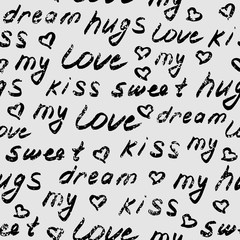 dream hugs love ki
ss my love my
kiss sweet hug
my love dream
ove sweet kiss my
ugs dream hugs
my kiss my
sweet my love